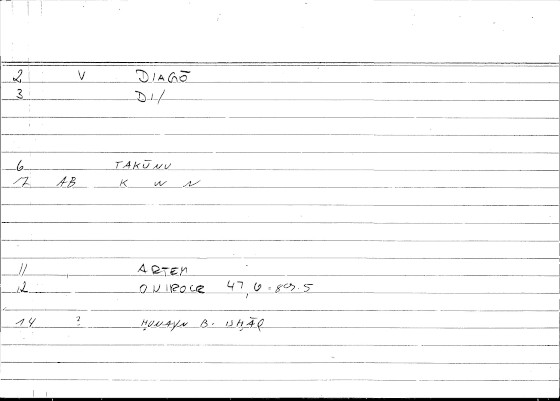 2 V DIAGŌ
3 DI/
6 TAKŪNU
17 AB K W N
11 ARTEM
12 ONIROCR 47,6
14 ? ḤUNAYN B. ISḤĀQ